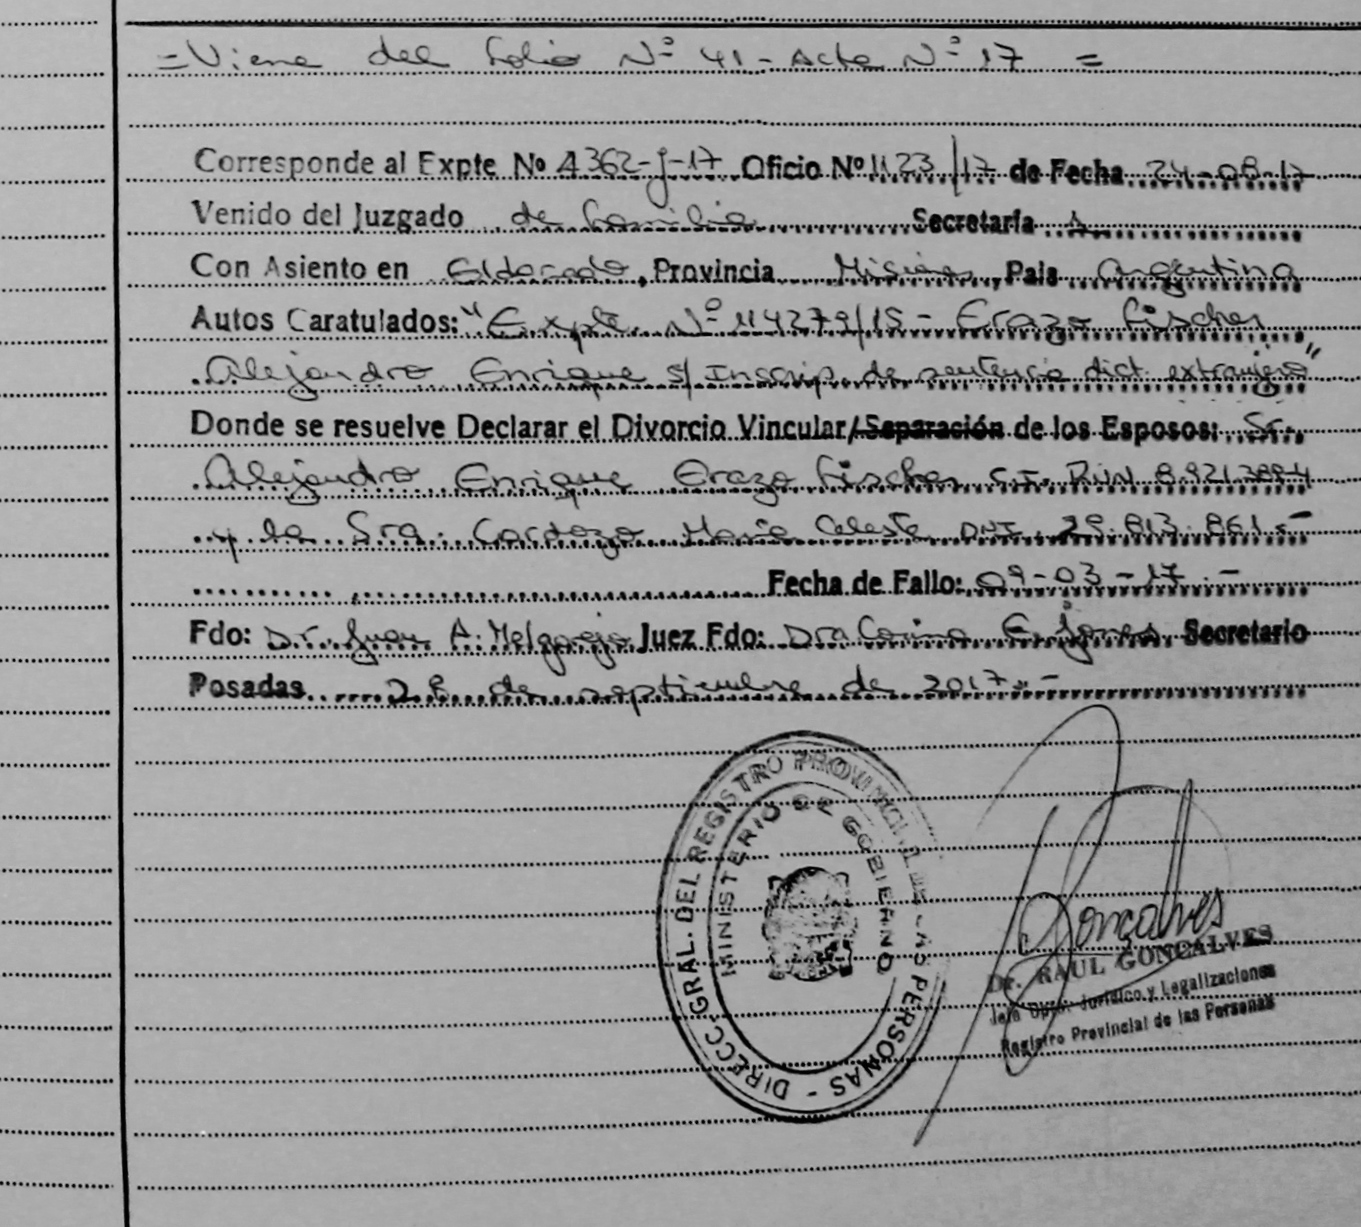 = Viene del folio Nº 41 - Acta Nº 17 =
Corresponde al Expte Nº 4362-J-17 Oficio Nº 1123/17 de Fecha 24-08-17
Venido del Juzgado de familia Secretaría
Con Asiento en Eldorado, Provincia Misiones, Pais Argentina
Autos Caratulados: "Expte. Nº 114279/15 - Erazo Fischer
Alejandro Enrique s/ Inscrip. de sentencia dict. extranjero"
Donde se resuelve Declarar el Divorcio Vincular/Separación de los Esposos: Sr.
Alejandro Enrique Erazo Fischer C.I. RUN
y la Sra. Cardozo María Celeste DNI 29.813.861.-
Fecha de Fallo: 09-03-17.-
Fdo: Dr. Juan A. Melgarejo Juez Fdo: Dra Carina Secretario
Posadas 28 de septiembre de 2017.-
DIRECC. GRAL. DEL REGISTRO PROVINCIAL DE LAS PERSONAS -
MINISTERIO DE GOBIERNO
Gonçalves
Dr. RAUL GONÇALVES
Jefe Dpto. Jurídico y Legalizaciones
Registro Provincial de las Personas